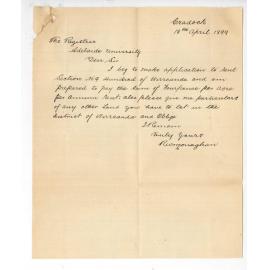 Cradock
18th April 1899
The Registrar
Adelaide University
Dear Sir
I beg to make application to rent
Section No 9 Hundred of Wirreanda and am
prepared to pay the sum of fourpence per acre
per annum rent. also please give me particulars
of any other land you have to let in the
district of Wirreanda and Oblige
I Remain
Truly Yours